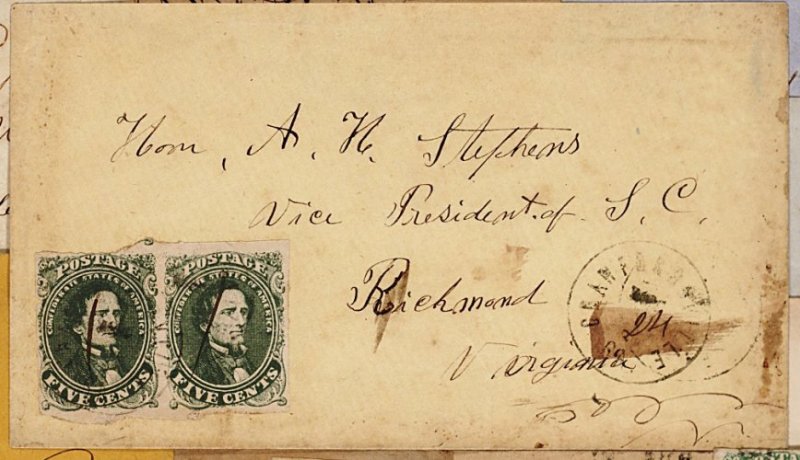 Hon, A. H. Stephens
Vice President of S. C.
Richmond
Virginia
24
POSTAGE
CONFEDERATE STATES OF AMERICA
FIVE CENTS
POSTAGE
CONFEDERATE STATES OF AMERICA
FIVE CENTS